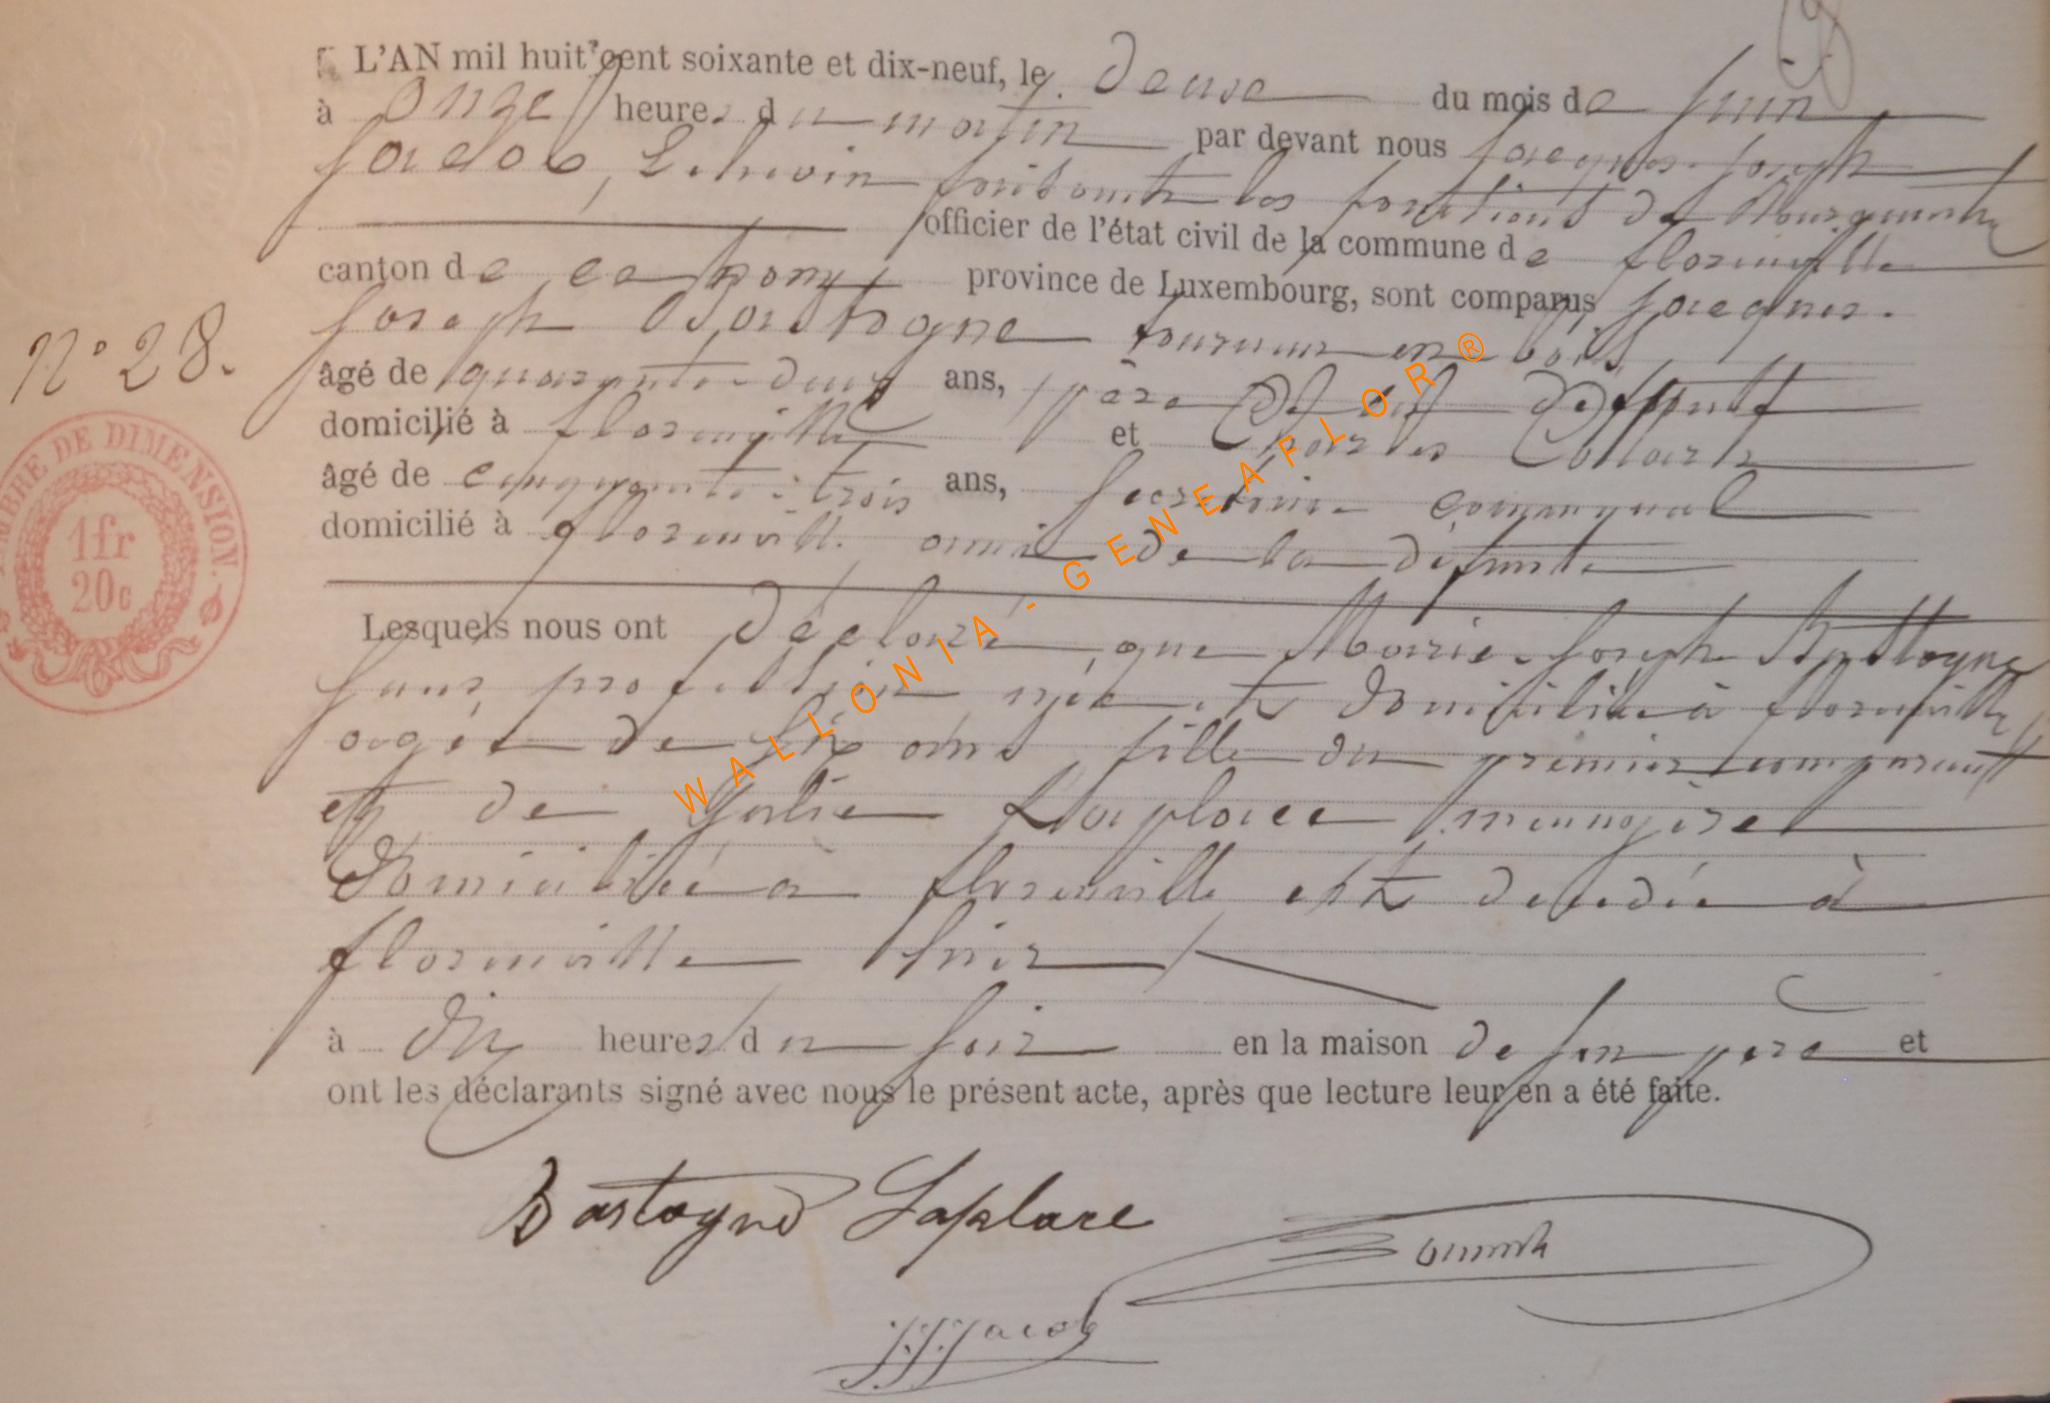 L'AN mil huit cent soixante et dix-neuf, le deux du mois de Juin
à onze heures du matin par devant nous Jacques-Joseph
Jacob, Echevin faisant les fonctions de Bourgmestre
officier de l'état civil de la commune de florenville
canton de province de Luxembourg, sont comparus Jacques-
Joseph Bastogne tourneur en bois
âgé de quarante-deux ans, père de la défunte
domicilié à florenville et Charles
âgé de cinquante-trois ans, Secrétaire communal
domicilié à florenville ami de la défunte
N° 28.
TIMBRE DE DIMENSION.
1fr
20c
Lesquels nous ont déclaré que Marie-Joseph Bastogne
sans profession née et domiciliée à florenville
agée de six ans fille du premier comparant
et de Julie Laplace ménagère
domiciliée à florenville est décédée à
florenville hier
à dix heures du soir en la maison de son père et
ont les déclarants signé avec nous le présent acte, après que lecture leur en a été faite.
Bastogne Laplace
J.J. Jacob
WALLONIA-GENEAFLOR®